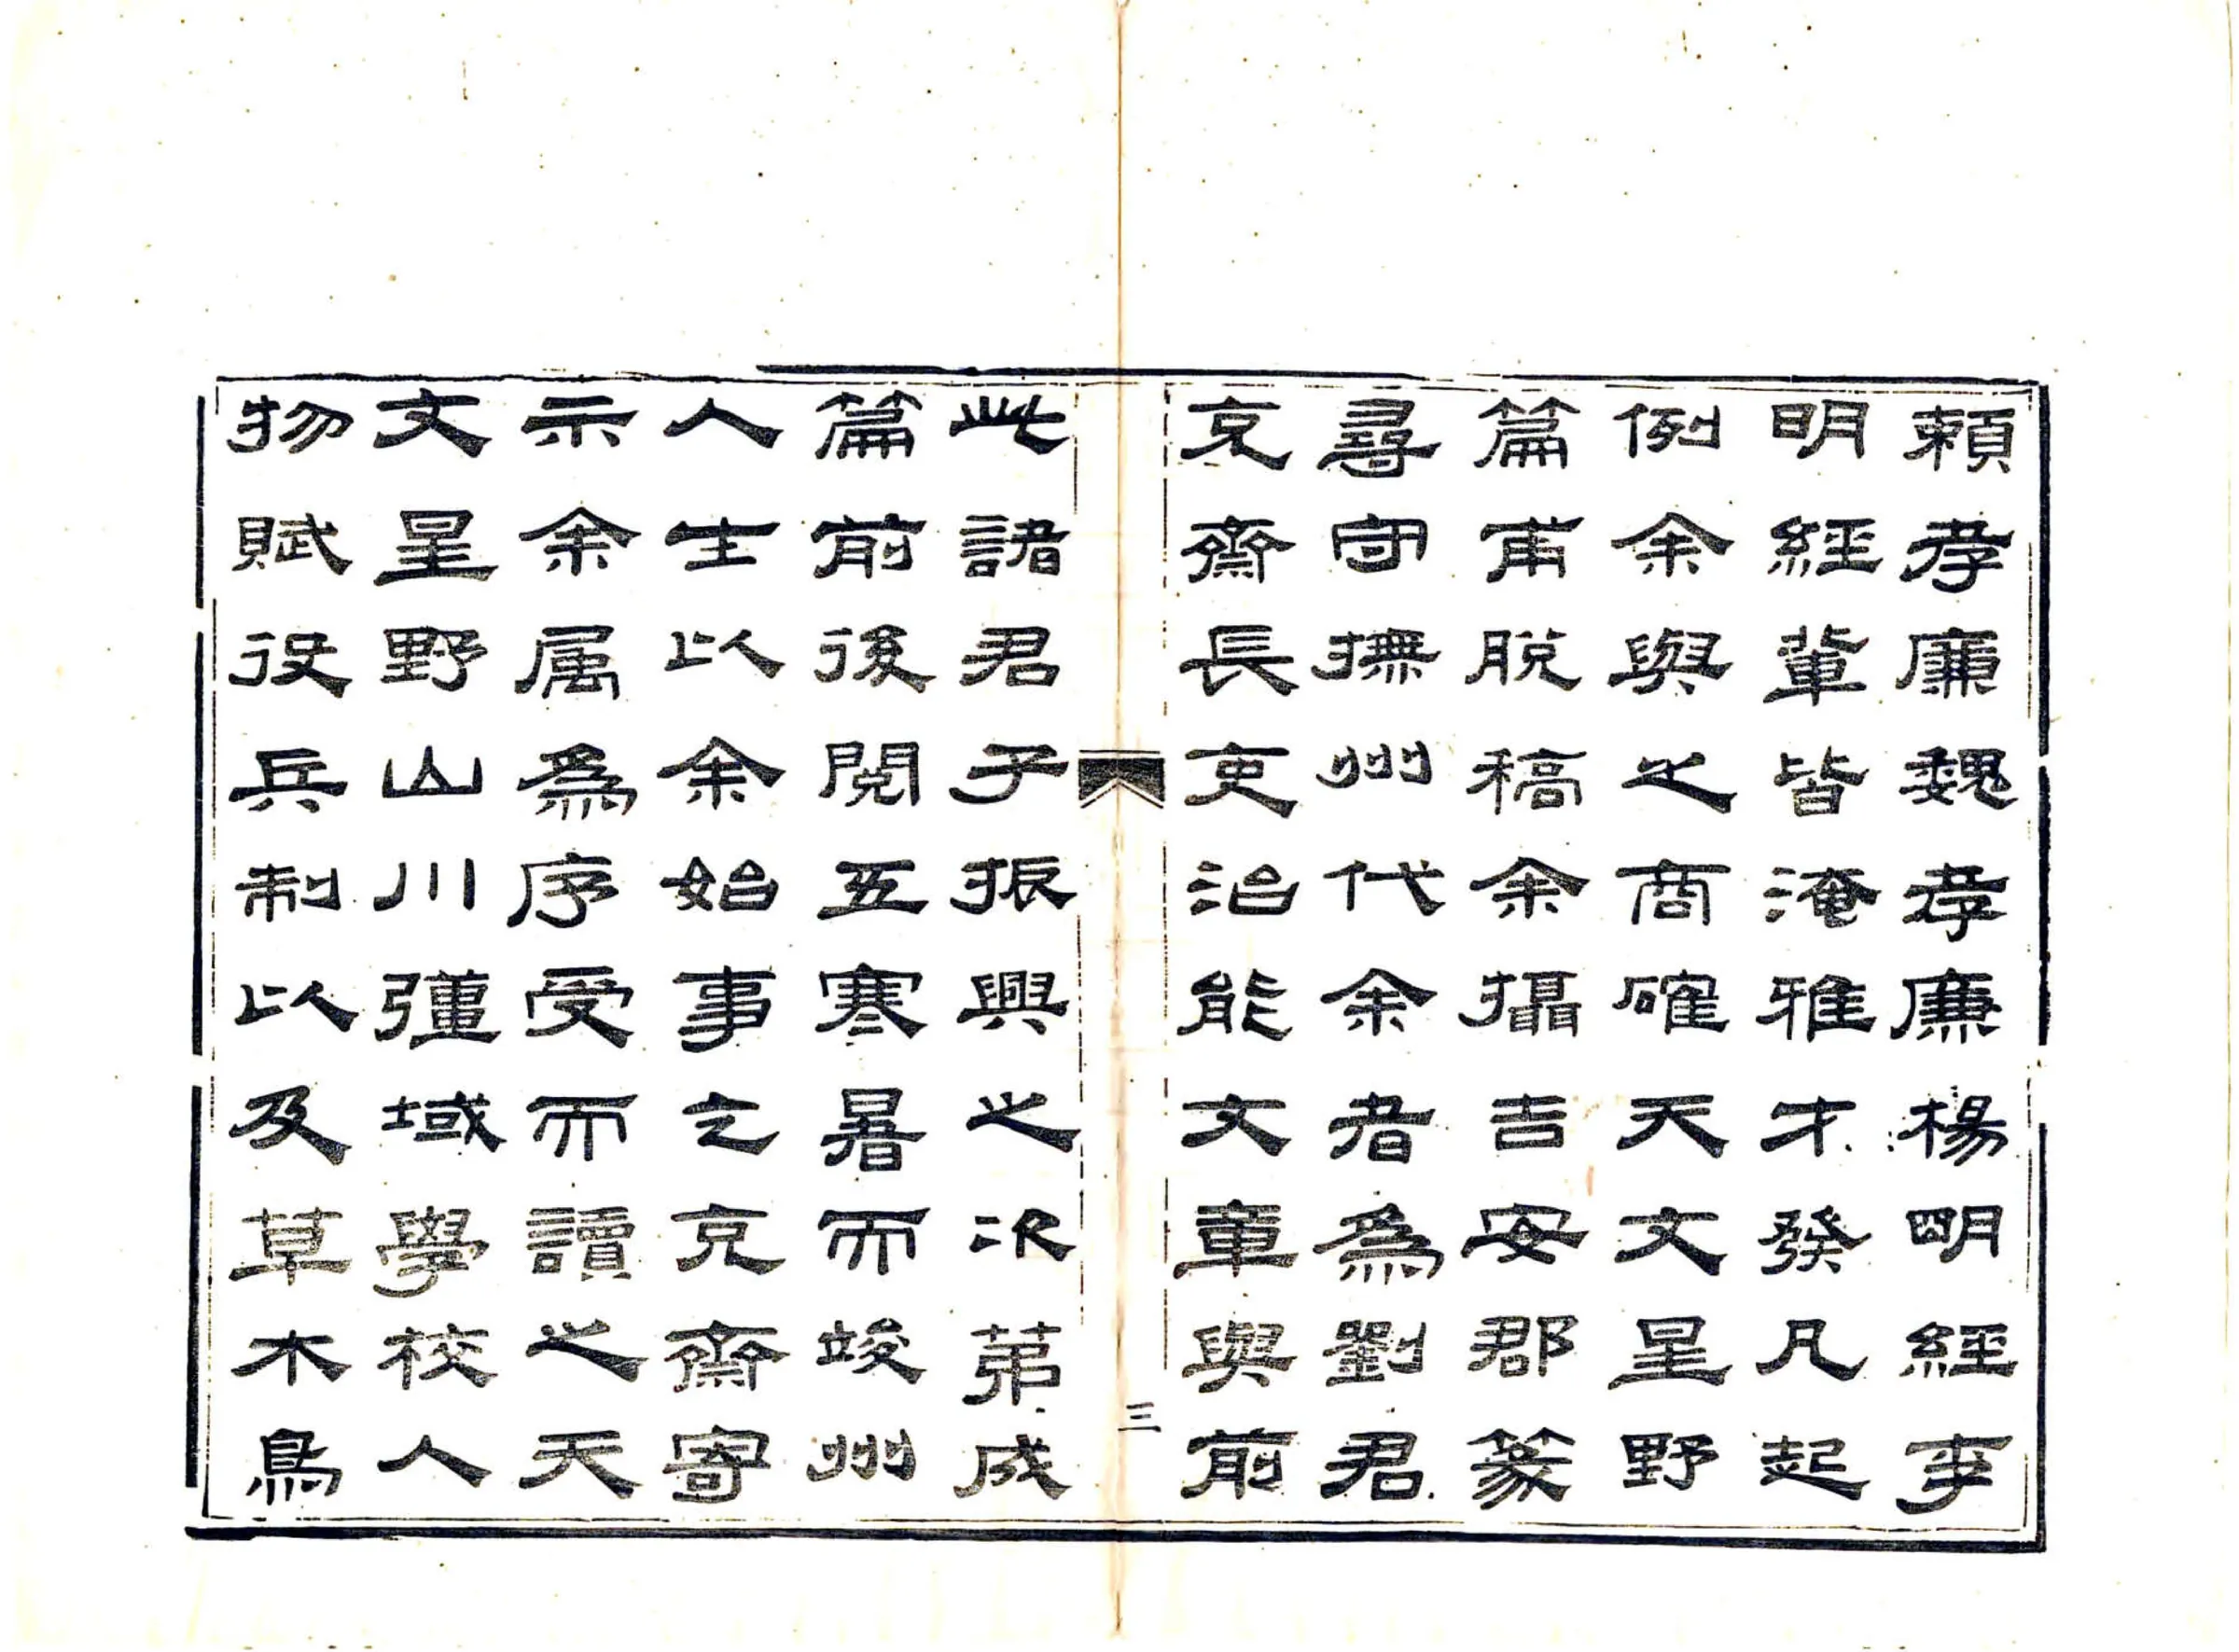 賴孝廉魏孝廉楊明經李
明經輩皆淹雅才發凡起
例余與之商確天文星野
篇甫脱稿余攝吉安郡篆
尋守撫州代余者為劉君
克齋長吏治能文章與前
三
此諸君子振興之次苐成
篇前後閱五寒暑而竣州
人士以余始事之克齋寄
示余属為序受而讀之天
文星野山川彊域學校人
物賦役兵制以及草木鳥